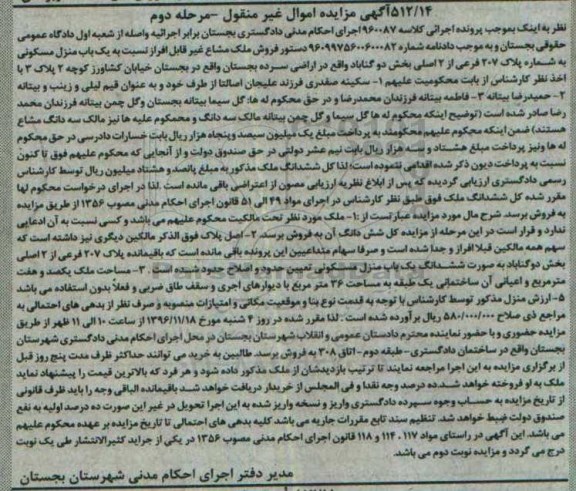 ۵۱۲/۱۴آگهی مزایده اموال غیر منقول -مرحله دوم
نظر به اینک بموجب پرونده اجرائی کلاسه ۹۶۰۰۸۷اجرای احکام مدنی دادگستری بجستان برابر اجرائیه واصله از شعبه اول دادگاه عمومی
حقوقی بجستان و به موجب دادنامه شماره ۹۶۰۹۹۷۵۶۰۰۶۰۰۰۸۲ دستور فروش ملک مشاع غیر قابل افراز نسبت به یک باب منزل مسکونی
به شماره پلاک ۲۰۷ فرعی از ۲ اصلی بخش دو گناباد واقع در اراضی سرده بجستان واقع در بجستان خیابان کشاورز کوچه ۲ پلاک ۳ با
اخذ نظر کارشناس از بابت محکومیت علیهم ۱- سکینه صفدری فرزند علیجان اصالتا از طرف خود و به عنوان قیم لیلی و زینب و بیتانه
۲- حمیدرضا بیتانه ۳- فاطمه بیتانه فرزندان محمدرضا و در حق محکوم له ها: گل سیما بیتانه بجستان وگل چمن بیتانه فرزندان محمد
رضا صادر شده است (توضیح اینکه محکوم له ها گل سیما و گل چمن بیتانه مالک سه دانگ و محمکوم علیه ها نیز مالک سه دانگ مشاع
هستند) ضمن اینکه محکوم علیهم محکومند به پرداخت مبلغ یک میلیون سیصد وپنجاه هزار ریال بابت خسارات دادرسی در حق محکوم
له ها ونیز پرداخت مبلغ هشتاد و سه هزار ریال بابت نیم عشر دولتی در حق صندوق دولت و از آنجایی که محکوم علیهم فوق تا کنون
نسبت به پرداخت دیون ذکر شده اقدامی ننموده است؛ لذا کل ششدانگ ملک مذکور به مبلغ پانصد و هشتاد میلیون ریال توسط کارشناس
رسمی دادگستری ارزیابی گردیده که پس از ابلاغ نظریه ارزیابی مصون از اعتراضی باقی مانده است .لذا در اجرای درخواست محکوم لها
مقرر شده کل ششدانگ ملک فوق طبق نظر کارشناس در اجرای مواد ۴۹ الی ۵۱ قانون اجرای احکام مدنی مصوب ۱۳۵۶ از طریق مزایده
به فروش برسد. شرح مال مورد مزایده عبارتست از :۱- ملک مورد نظر تحت مالکیت محکوم علیهم می باشد و کسی نسبت به آن ادعایی
ندارد و قرار است در این مرحله از مزایده کل شش دانگ آن به فروش برسد. ۲- اصل پلاک فوق الذکر مالکین دیگری نیز داشته است که
سهم همه مالکین قبلا افراز و جدا شده است و صرفا سهام متداعیین این پرونده باقی مانده است که باقیمانده پلاک ۲۰۷ فرعی از ۲ اصلی
بخش دوگناباد به صورت ششدانگ یک باب منزل مسکونی تعیین حدود و اصلاح حدود شده است. ۳- مساحت ملک یکصد و هفت
مترمربع و اعیانی آن ساختمانی یک طبقه به مساحت ۳۶ متر مربع با دیوارهای آجری و سقف طاق ضربی و فعلاً بدون استفاده می باشد
۵- ارزش منزل مذکور توسط کارشناس با توجه به قدمت نوع بنا و موقعیت مکانی و امتیازات منصوبه و صرف نظر از بدهی های احتمالی به
مراجع ذی صلاح ۵۸۰/۰۰۰/۰۰۰ ریال برآورده شده است: لذا مقرر شده در روز ۴ شنبه مورخ ۱۳۹۶/۱۱/۱۸ از ساعت ۱۰ الی ۱۱ ظهر از طریق
مزایده حضوری و با حضور نماینده محترم دادستان عمومی و انقلاب شهرستان بجستان در محل اجرای احکام مدنی دادگستری شهرستان
بجستان واقع در ساختمان دادگستری- طبقه دوم-اتاق ۳۰۸ به فروش برسد. طالبین به خرید می توانند حداکثر ظرف مدت پنج روز قبل
از برگزاری مزایده به این اجرا مراجعه نمایند تا ترتیب بازدیدشان از ملک مذکور داده شود و هر فرد که بالاترین قیمت را پیشنهاد نماید
ملک به او فروخته خواهد شد.ده درصد وجه نقدا و فی المجلس از خریدار دریافت خواهد شد باقیمانده الباقی وجه را باید ظرف قانونی
از تاریخ مزایده به حساب وجوه سپرده دادگستری واریز و نسخه واریز شده به این اجرا تحویل در غیر این صورت ده درصد اولیه به نفع
صندوق دولت ضبط خواهد شد. تنظیم سند تابع مقررات جاریه می باشد کلیه بدهی های احتمالی تا تاریخ مزایده بر عهده محکوم علیهم
می باشد. این آگهی در راستای مواد ۱۱۷ . ۱۱۴ و ۱۱۸ قانون اجرای احکام مدنی مصوب ۱۳۵۶ در یکی از جراید کثیرالانتشار طی یک نوبت
درج می گردد و مزایده نوبت دوم می باشد.
مدیر دفتر اجرای احکام مدنی شهرستان بجستان